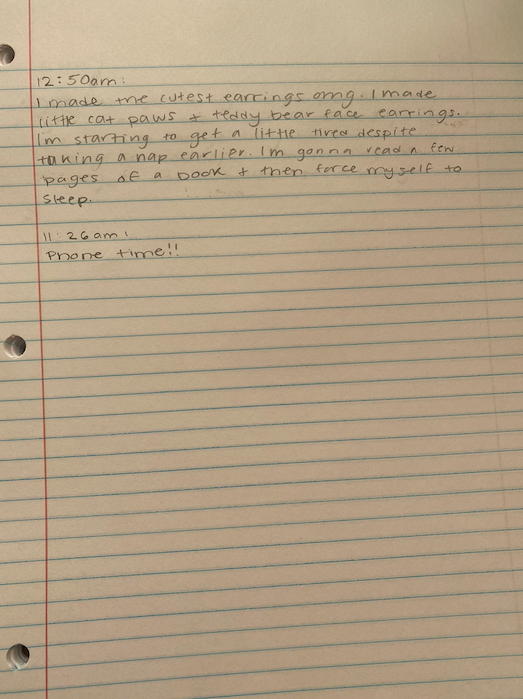 12:50am:
I made the cutest earrings omg. I made
little cat paws + teddy bear face earrings.
Im starting to get a little tired despite
taking a nap earlier. Im gonna read a few
pages of a book + then force myself to
sleep.
11:26am:
Phone time!!